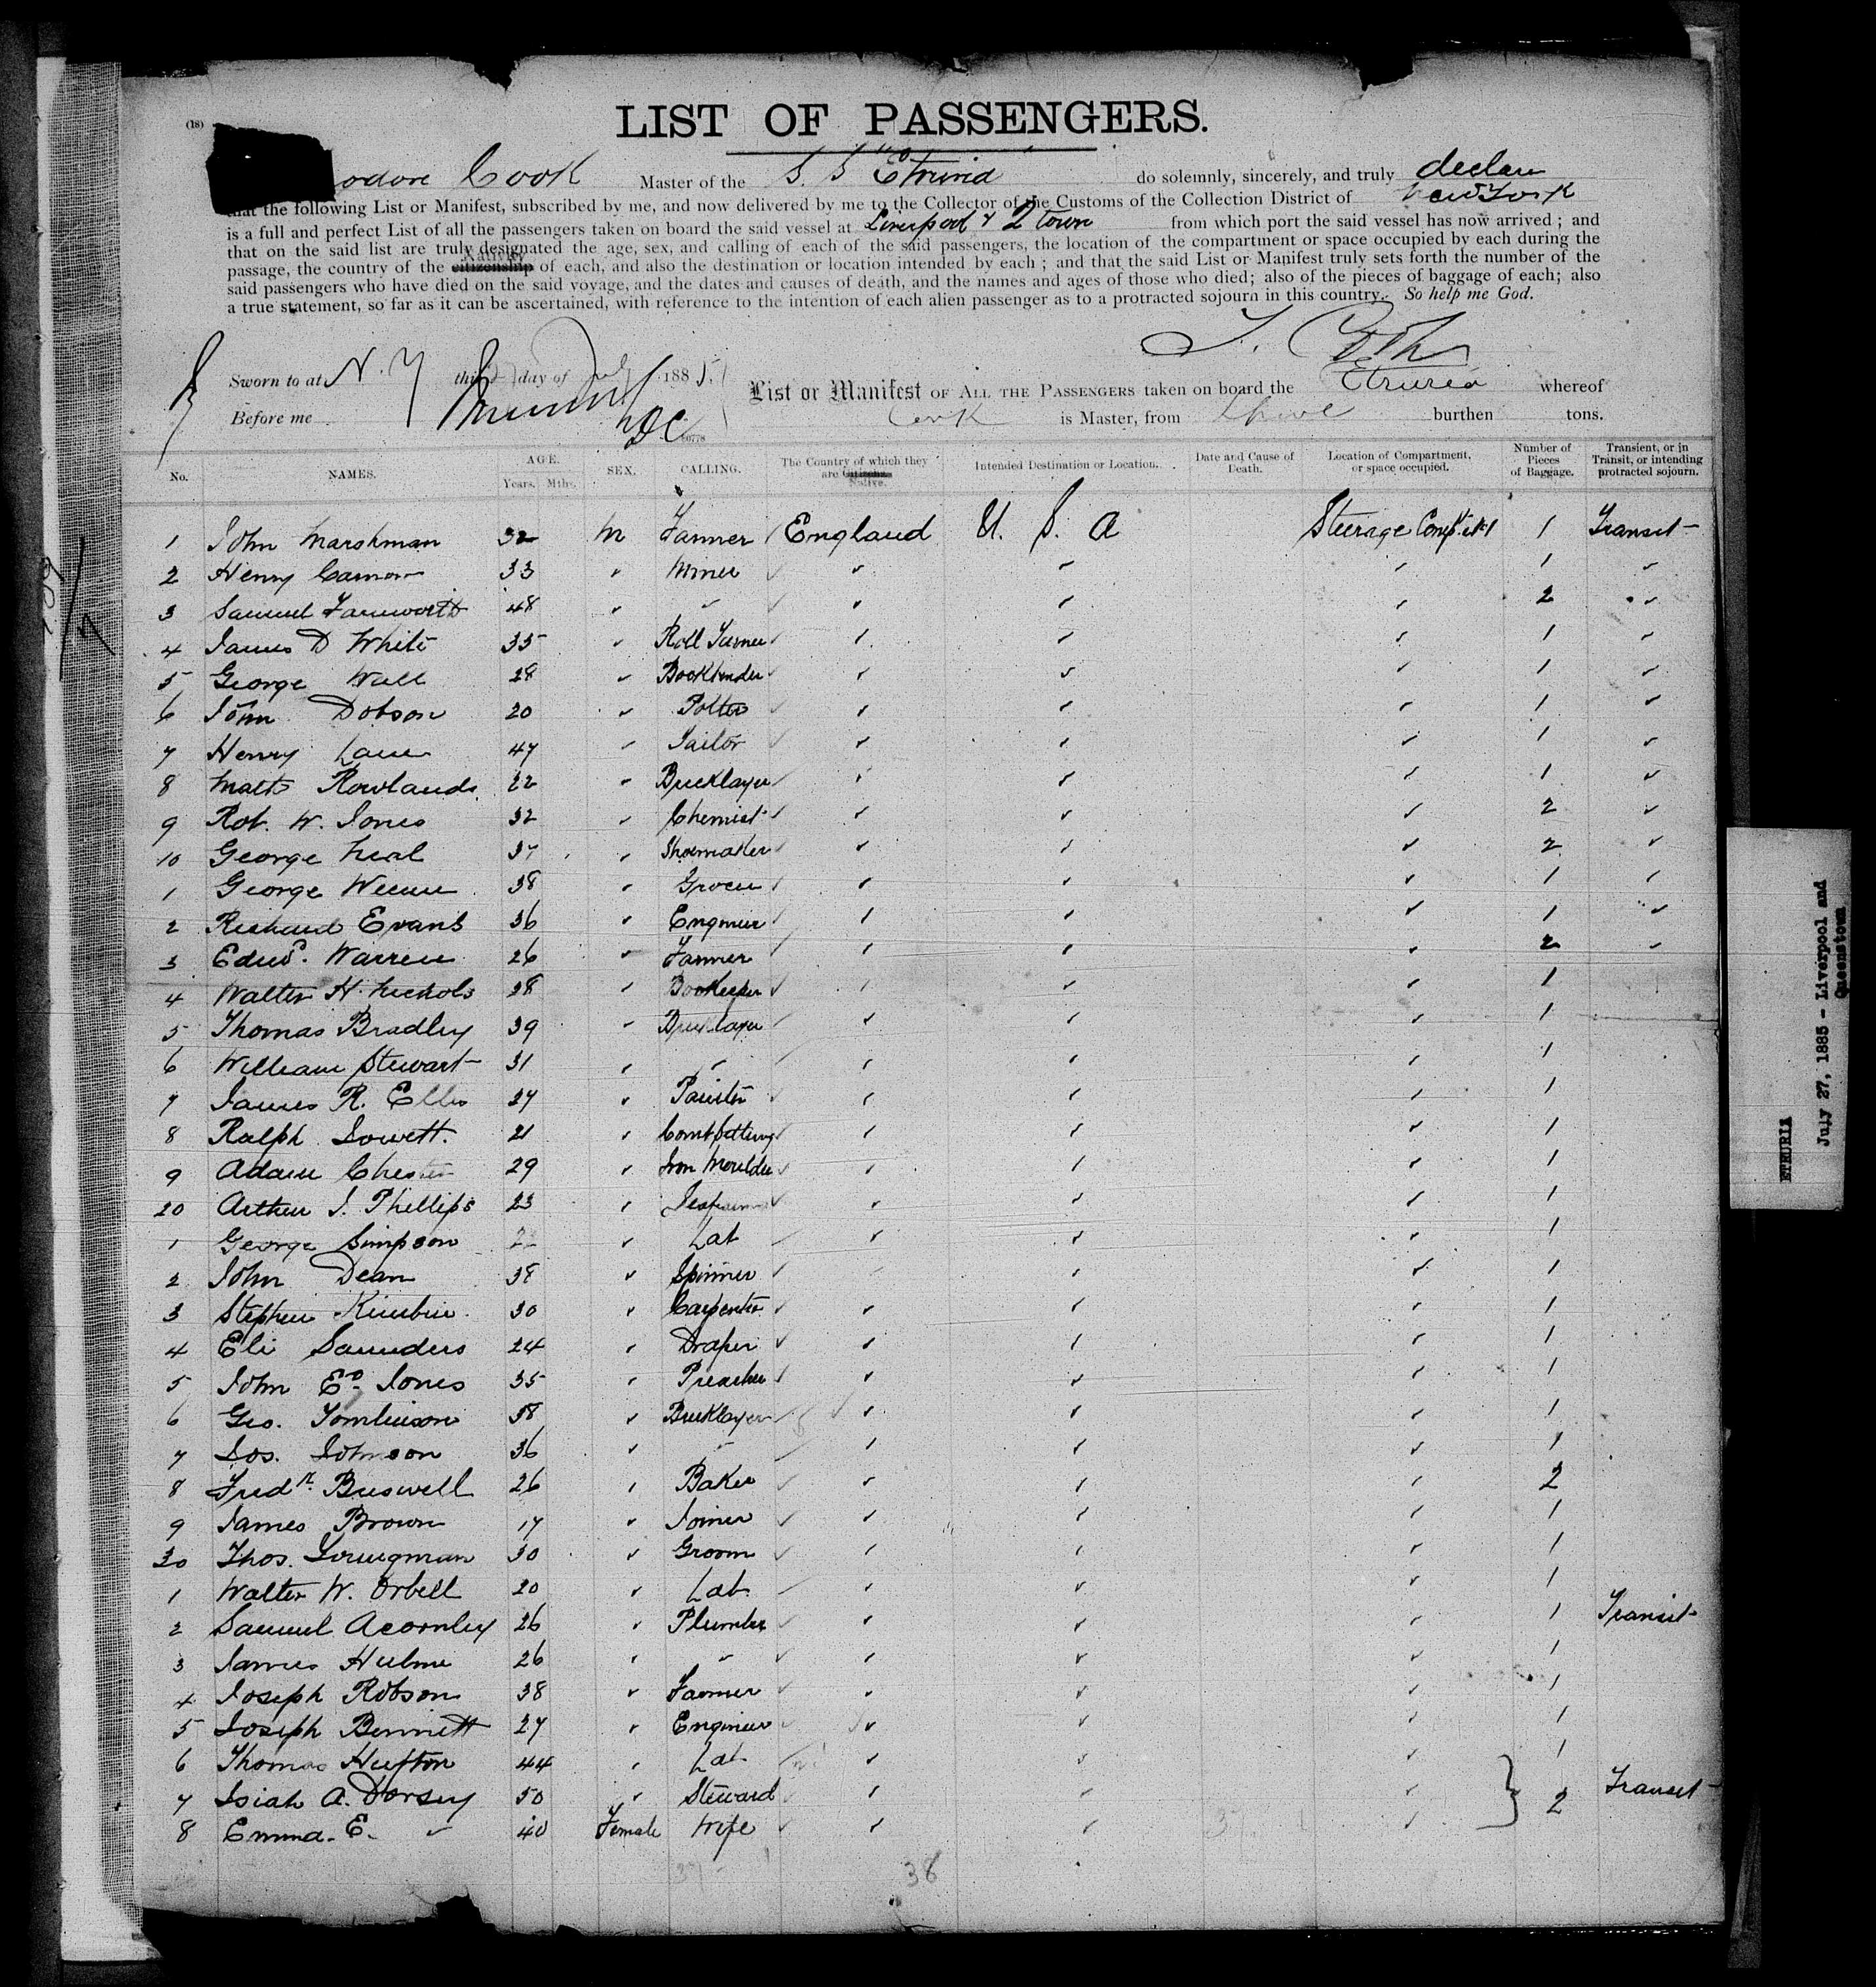 LIST OF PASSENGERS.
(18)
odore Cook Master of the S. S "Etruria" do solemnly, sincerely, and truly declare
that the following List or Manifest, subscribed by me, and now delivered by me to the Collector of the Customs of the Collection District of New York
is a full and perfect List of all the passengers taken on board the said vessel at Liverpool & Q town from which port the said vessel has now arrived; and
that on the said list are truly designated the age, sex, and calling of each of the said passengers, the location of the compartment or space occupied by each during the
passage, the country of the citizenship Nativity of each, and also the destination or location intended by each; and that the said List or Manifest truly sets forth the number of the
said passengers who have died on the said voyage, and the dates and causes of death, and the names and ages of those who died; also of the pieces of baggage of each; also
a true statement, so far as it can be ascertained, with reference to the intention of each alien passenger as to a protracted sojourn in this country. So help me God.
T. Cook
Sworn to at N. Y this 27 day of July 1885. List or Manifest OF ALL THE PASSENGERS taken on board the Etruria whereof
Before me DC Cook is Master, from burthen tons.
No. NAMES. AGE. Years. Mths. SEX. CALLING. The Country of which they are Citizens. Native. Intended Destination or Location. Date and Cause of Death. Location of Compartment, or space occupied. Number of Pieces of Baggage. Transient, or in Transit, or intending protracted sojourn.
1 John Marshman 32 M Farmer England U. S. A Steerage 1 Transit
2 Henry 33 " Miner " " " 1 "
3 Samuel Farnworth 48 " " " " " 2 "
4 James D White 35 " Roll Turner " " " 1 "
5 George Wall 28 " Bookbinder " " " 1 "
6 John Dobson 20 " Potter " " " 1 "
7 Henry Lane 47 " Tailor " " " 1 "
8 Matt Rowlands 22 " Bricklayer " " " 1 "
9 Rob. W. Jones 32 " Chemist " " " 2 "
10 George Neal 37 " Shoemaker " " " 2 "
1 George 38 " Grocer " " " 1 "
2 Richard Evans 36 " Engineer " " " 1 "
3 Edwd. Warren 26 " Farmer " " " 2 "
4 Walter H. Nichols 28 " Bookeeper " " " 1
5 Thomas Bradley 39 " Bricklayer " " " 1
6 William Stewart 31 " " " " " 1
7 James R. Ellis 27 " Painter " " " 1
8 Ralph Jowett. 21 " " " " 1
9 Adam Chester 29 " Iron Moulder " " " 1
20 Arthur J. Phillips 23 " " " " 1
1 George Simpson " Lab " " " 1
2 John Dean 38 " Spinner " " 1
3 Stephen 30 " Carpenter " " " 1
4 Eli Saunders 24 " Draper " " " 1
5 John Ed. Jones 35 " Preacher " " " 1
6 Geo. Tomlinson 38 " Bricklayer " " " 1
7 Jos. Johnson 36 " " " " " 1
8 Fredk. Buswell 26 " Baker " " " 2
9 James Brown 17 " Joiner " " " 1
30 Thos. Youngman 30 " Groom " " " 1
1 Walter W. Orbell 20 " Lab " " " 1
2 Samuel Acornley 26 " Plumber " " " 1 Transit
3 James Hulme 26 " " " " " 1
4 Joseph Robson 38 " Farmer " " " 1
5 Joseph Bennett 27 " Engineer " " " 1
6 Thomas Hufton 44 " Lab " " " 1
7 Isiah A. Dorsey 50 " Steward " " " } 2 Transit
8 Emma. E. " 40 Female Wife " " "
37 38
ETRURIA
July 27, 1885 - Liverpool and
Queenstown